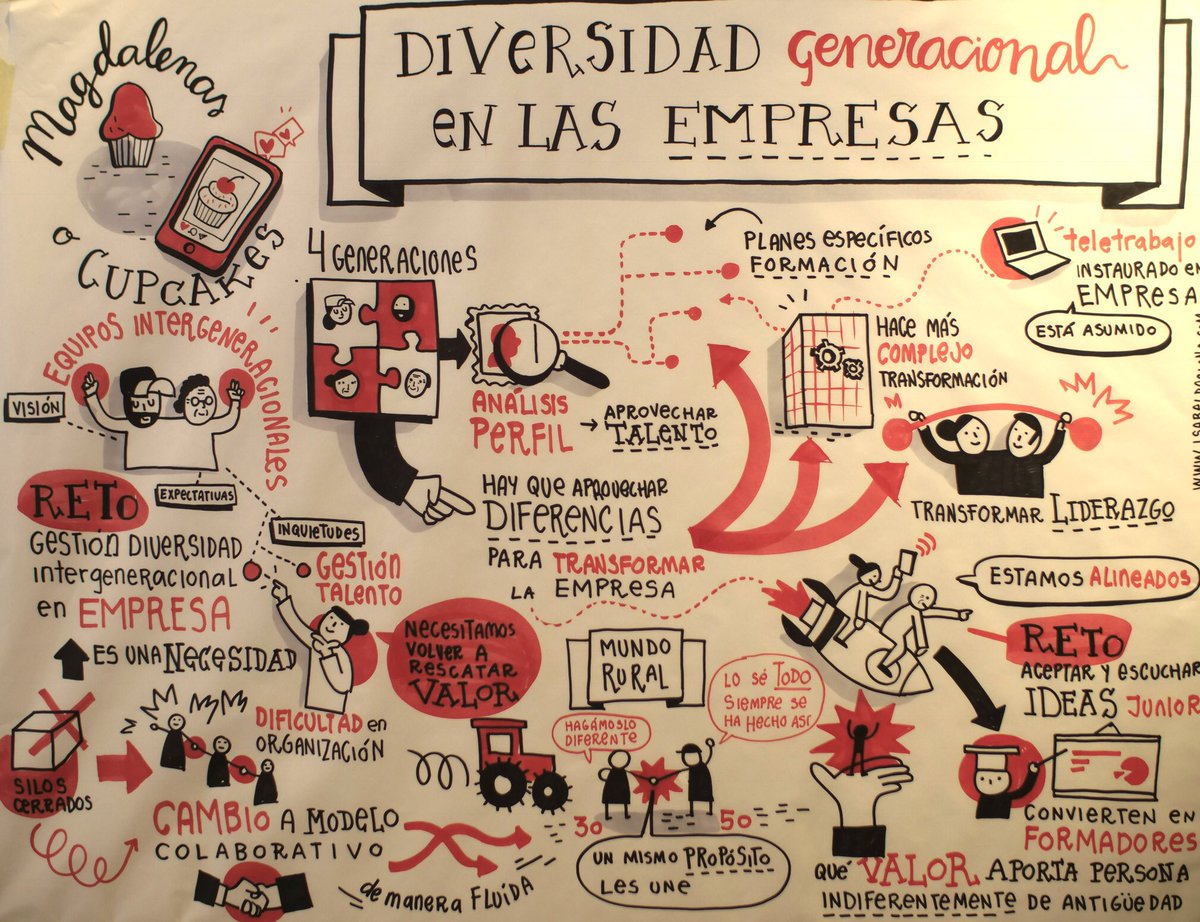 DIVERSIDAD generacional
EN LAS EMPRESAS
Magdalenas
o CUPCAKES
EQUIPOS INTERGENERACIONALES
VISIÓN
EXPECTATIVAS
INQUIETUDES
RETO
GESTIÓN DIVERSIDAD
intergeneracional
en EMPRESA
ES UNA NECESIDAD
GESTIÓN
TALENTO
4 GENERACIONES
ANÁLISIS
PERFIL
APROVECHAR
TALENTO
PLANES ESPECÍFICOS
FORMACIÓN
teletrabajo
INSTAURADO EN
EMPRESA
ESTÁ ASUMIDO
HACE MÁS
COMPLEJO
TRANSFORMACIÓN
HAY QUE APROVECHAR
DIFERENCIAS
PARA TRANSFORMAR
LA EMPRESA
TRANSFORMAR LIDERAZGO
ESTAMOS ALINEADOS
RETO
ACEPTAR Y ESCUCHAR
IDEAS JUNIOR
NECESITAMOS
VOLVER A
RESCATAR
VALOR
SILOS
CERRADOS
DIFICULTAD en
ORGANIZACIÓN
CAMBIO A MODELO
COLABORATIVO
de manera FLUIDA
MUNDO
RURAL
HAGÁMOSLO
DIFERENTE
LO SÉ TODO
SIEMPRE SE
HA HECHO ASÍ
30
50
UN MISMO PROPÓSITO
LES UNE
CONVIERTEN EN
FORMADORES
QUÉ VALOR APORTA PERSONA
INDIFERENTEMENTE DE ANTIGÜEDAD